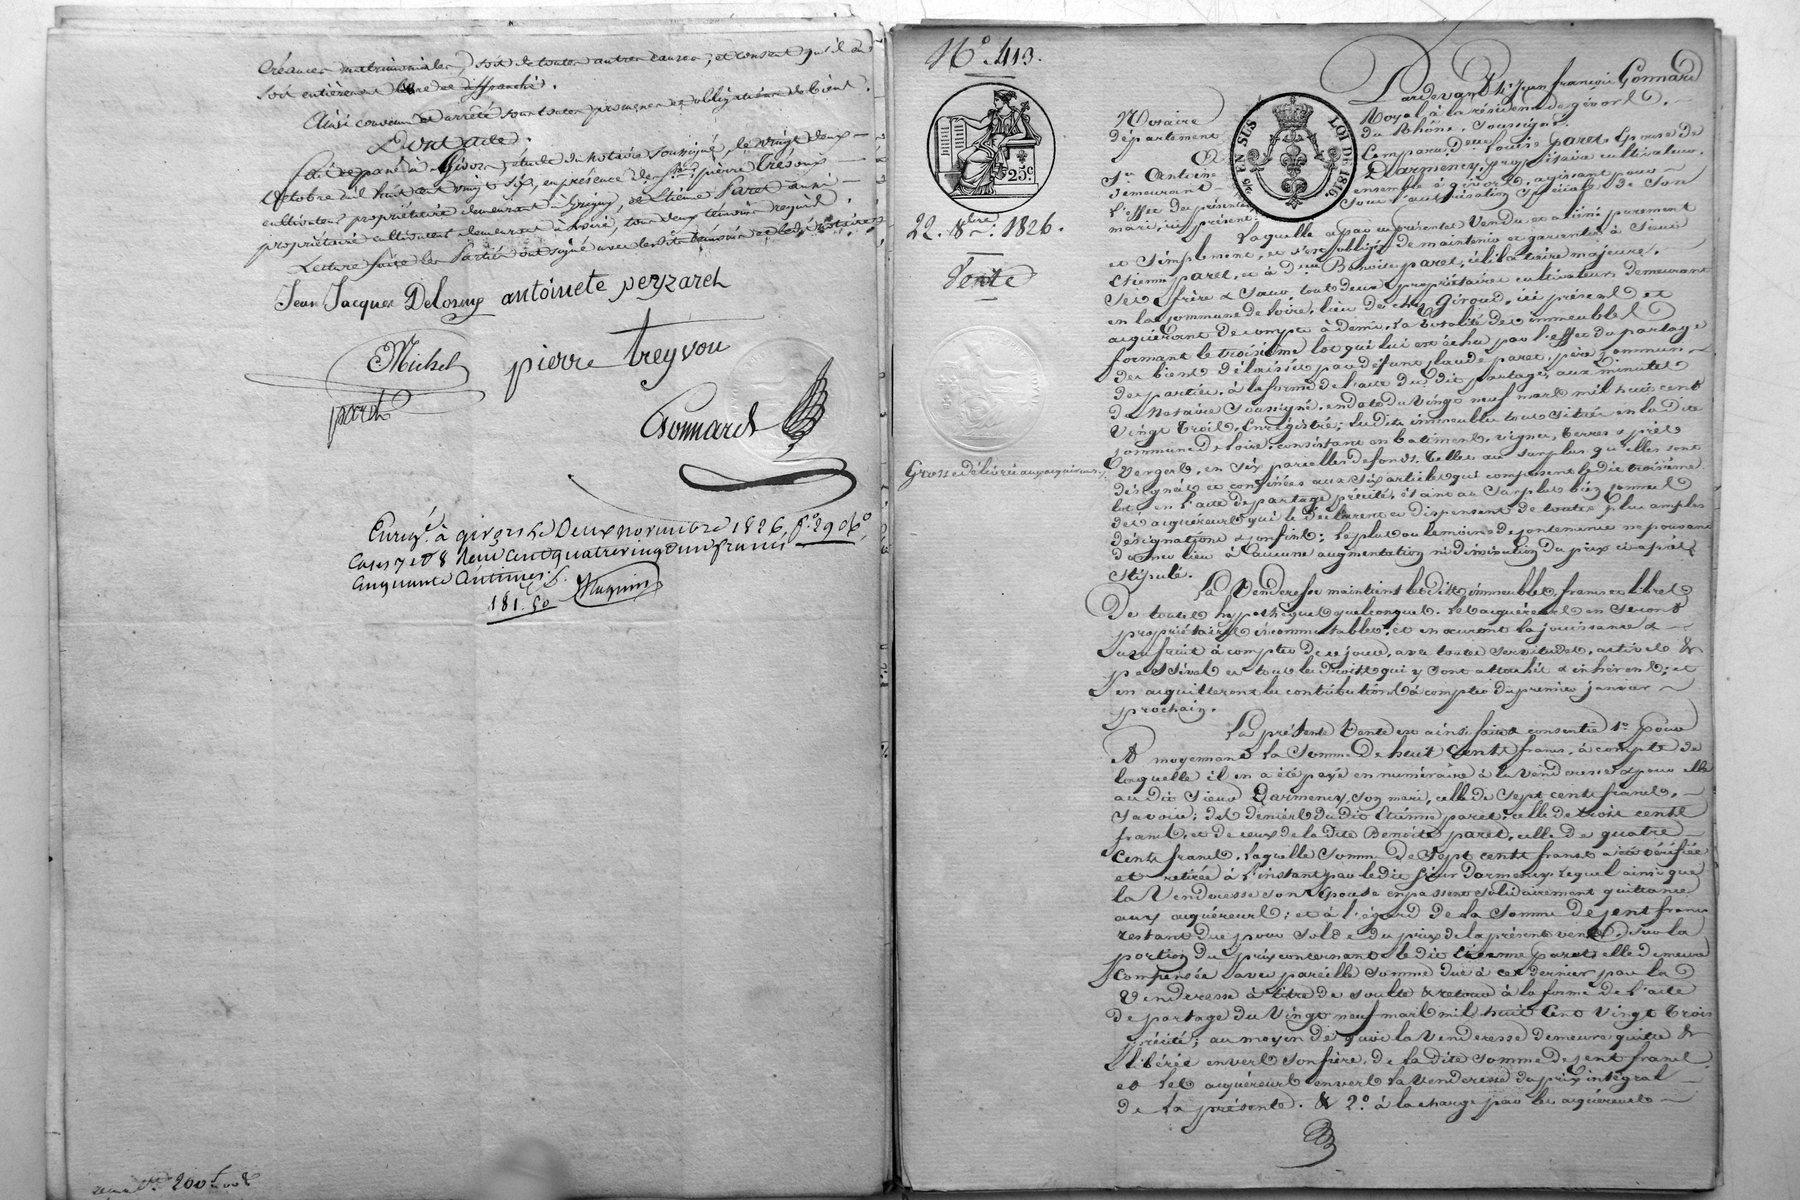 Créances matrimoniales, soit de toutes autres causes, et consent qu'il en
soit entièrement libre et affranchi.
Ainsi convenu et arrêté sous toutes promesses et obligations de biens.
Dont acte.
fait et passé à Givors, étude du notaire soussigné, le vingt deux
octobre mil huit cent vingt six, en présence de pierre Tresvoux
cultivateur propriétaire demeurant à Grigny, et Etienne Paret aussi
propriétaire cultivateur demeurant à Loire, tous deux témoins requis.
Lecture faite les Parties ont signé avec les témoins et le notaire
Jean Jacques Delorme antoinete peyzaret
Michel pierre treyvou
paret
Gonnard
Enreg.é à givors le Deux novembre 1826, f.o 29 v.o
Cases 7 et 8 Reçu Cent quatre vingt un francs
cinquante Centimes.
181.50
N.o 413.
25.c
25 EN SUS LOI DE 1816.
22. 8bre. 1826.
Vente
Grosse délivrée aux acquéreurs
Pardevant M.e Jean François Gonnard
Notaire Royal à la résidence de givors,
département du Rhône, Soussigné,
Comparu D.e Louise Paret, Epouse de
S.r Antoine Darmency, propriétaire cultivateur,
demeurant ensemble à givors, agissant pour
l'effet des présentes sous l'autorisation spéciale de son
mari, ici présent.
Laquelle a par ces présentes Vendu et aliéné purement
et simplement, et s'est obligée de maintenir et garantir à Sieur
Etienne paret, et à D.lle Benoite paret, célibataire majeure,
Ses frère & Sœur tout deux propriétaires cultivateurs demeurant
en la commune de Loire, lieu de chez Giroud, ici présent et
acquérant de compte à demi, La totalité des immeubles
formant le troisième lot qui lui est échu par l'effet du partage
des biens délaissés par défunt claude paret, père commun
des parties, à la forme de l'acte dudit partage, aux minutes
du Notaire Soussigné, en date du vingt neuf mars mil huit cent
vingt Trois, Enregistré; Lesdits immeubles tous situés en la dite
commune de Loire, consistant en batiments, vignes, terres & prés
Vergers, en six parcelles de fonds, telles au surplus qu'elles sont
désignées et confinées aux six articles qui composent ledit troisième
lot en l'acte de partage précité, étant au surplus bien connues
des acquéreurs qui le déclarent et dispensent de toutes plus amples
désignations & confins; Le plus ou le moins de contenance ne pouvant
donner lieu à aucune augmentation ni diminution du prix ci après
stipulé.
La Venderesse maintient lesdits immeubles francs et libres
De toutes hypothèques quelconques. Les acquéreurs en seront
propriétaires incommutables, et en auront la jouissance &
usufruit à compter de ce jour, avec toutes servitudes, actives &
passives et tous les droits qui y sont attachés & inhérents; et
en acquitteront les contributions à compter du premier janvier
prochain.
La présente Vente est ainsi faite & consentie 1.o pour
et moyennant la Somme De huit Cents francs, à compte de
laquelle il en a été payé en numéraire à la venderesse & pour elle
au dit Sieur Darmency, son mari, celle de Sept cents francs,
savoir; des deniers du dit Etienne paret, celle de trois cents
francs, et de ceux de la dite Benoite paret, celle de quatre
Cents francs, laquelle somme de Sept cents francs a été vérifiée
et retirée à l'instant par le dit Sieur Darmency, lequel ainsi que
la Venderesse son Epouse en passent solidairement quittance
aux acquéreurs; et à l'égard de la somme de cent francs
restant due pour solde du prix de la présente vente, sur la
portion du prix concernant le dit Etienne paret, elle demeure
compensée avec pareille somme due à ce dernier par la
Venderesse à titre de soulte & retour à la forme de l'acte
de partage du Vingt neuf mars mil huit Cent vingt Trois
précité; au moyen de quoi la Venderesse demeure quitte &
libérée envers son frère, de la dite somme de cent francs
et les acquéreurs envers la Venderesse du prix intégral
de la présente. & 2.o à la charge par les acquéreurs